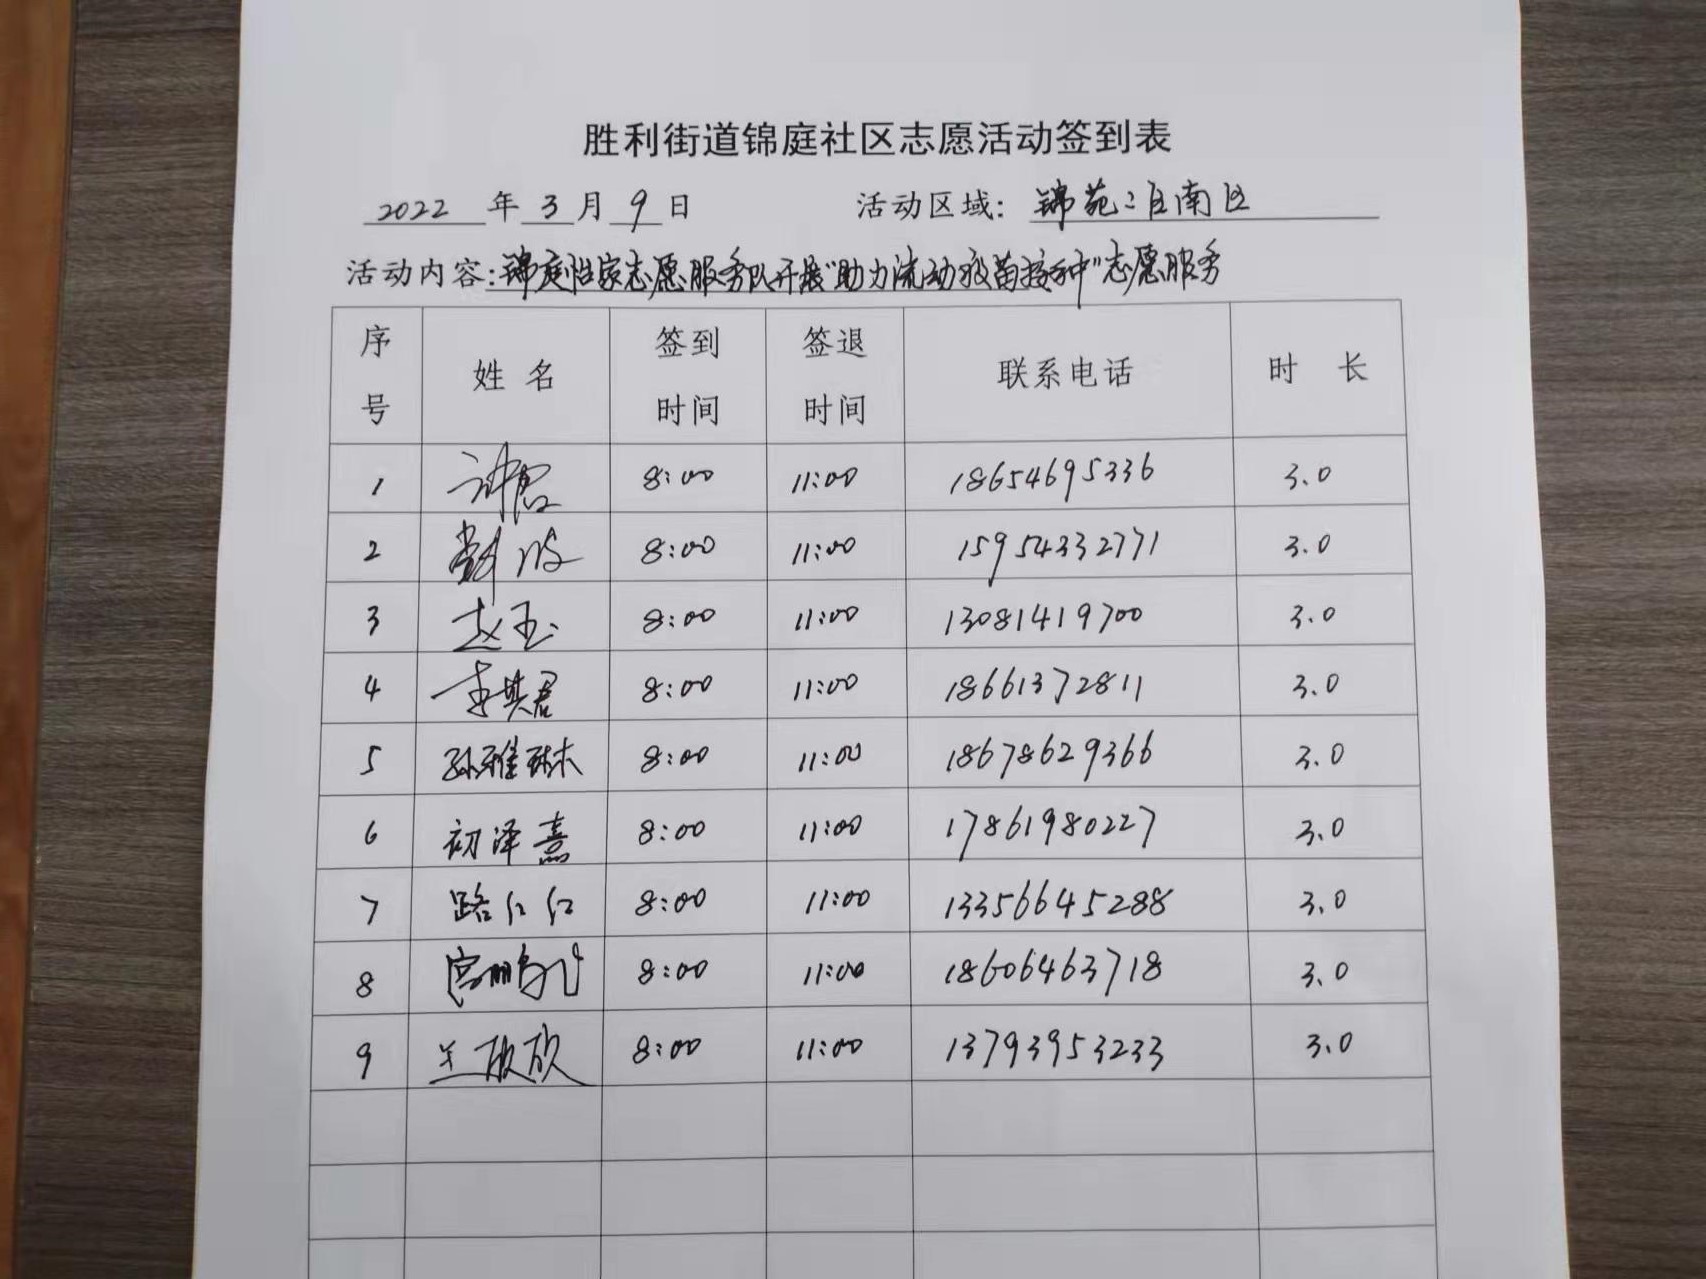 胜利街道锦庭社区志愿活动签到表
2022 年 3 月 9 日 活动区域: 锦苑二区南区
活动内容: 锦庭 家志愿服务队开展"助力流动疫苗接种"志愿服务
序号 姓名 签到时间 签退时间 联系电话 时长
1 8:00 11:00 18654695336 3.0
2 波 8:00 11:00 15954332771 3.0
3 赵玉 8:00 11:00 13081419700 3.0
4 李其君 8:00 11:00 18661372811 3.0
5 孙雅琳 8:00 11:00 18678629366 3.0
6 初泽熹 8:00 11:00 17861980227 3.0
7 路红红 8:00 11:00 13356645288 3.0
8 宫鹏飞 8:00 11:00 18606463718 3.0
9 8:00 11:00 13793953233 3.0